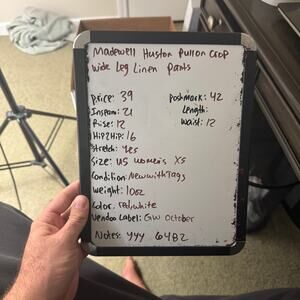 Madewell Huston Pull on Crop
Wide Leg Linen Pants
Price: 39
Postmark: 42
Inseam: 21
Length:
Rise: 12
Waist: 12
Hip2Hip: 16
Stretch: Yes
Size: US women's XS
Condition: New with Tags
Weight: 10oz
Color: red, white
Vendoo Label: GW October
Notes: YYY 6482